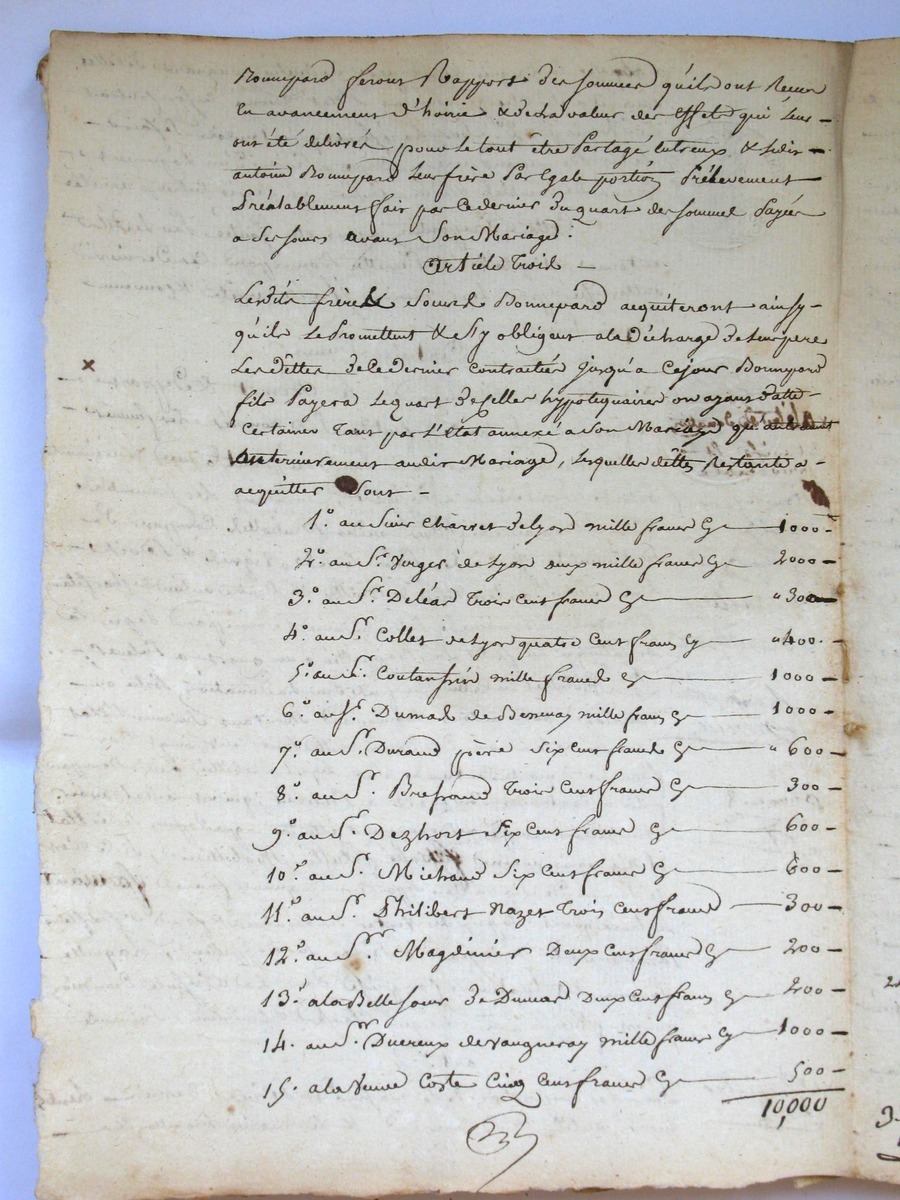 Bonnepard feront Rapport des sommes qu'ils ont Recue
En avancement d'hoirie & de la valeur des Effets qui Leur -
ont été delivrés pour Le tout être Partagé entreux & Ledit -
antoine Bonnepard Leur frère Par Egale portion Prélevement
Préalablement fait par ce dernier du quart des sommes Payée
a Ses sœurs avant Son Mariage.
article trois -
Lesdits frère & Sœurs Bonnepard acquiteront ainsy -
qu'ils Le Promettent & s'y obligent a la décharge de Leur pere
Les dettes de ce dernier contractées jusqu'a ce jour Bonnepard
fils Payera Le quart de celles hypotequaires ou ayans date -
Certaines tant par L'état annexé a Son Mariage qu'
anterieurement audit Mariage, Lesquelles dettes Restante a -
acquitter Sont -
1.° au Sieur Charret de Lyon mille francs Cy 1000 -
2.° au S.r Verges de Lyon deux mille francs Cy 2000 -
3.° au S.r Deléas Trois Cent francs Cy " 300
4.° au S.r Collet de Lyon quatre Cent francs Cy " 400.
5.° au S.r Coutansin mille francs Cy 1000 -
6.° au S.r Dumas de Bessenay mille francs Cy 1000 -
7.° au S.r Durand père Six Cent francs Cy " 600 -
8.° au S.r Brefrand Trois Cent francs Cy 300 -
9.° au S.r Dezhort Six Cent francs Cy 600 -
10.° au S.r Michaud Six Cent francs Cy 600 -
11.° au S.r Philibert Nazet Trois Cent francs 300 -
12.° au S.r Magdinier Deux Cent francs Cy 200 -
13.° a la Belle Sœur de Dumas Deux Cent francs Cy 200 -
14. au S.r Ducreux de Vaugneray mille francs Cy 1000 -
15. a la Veuve Coste Cinq Cent francs Cy 500 -
10,000